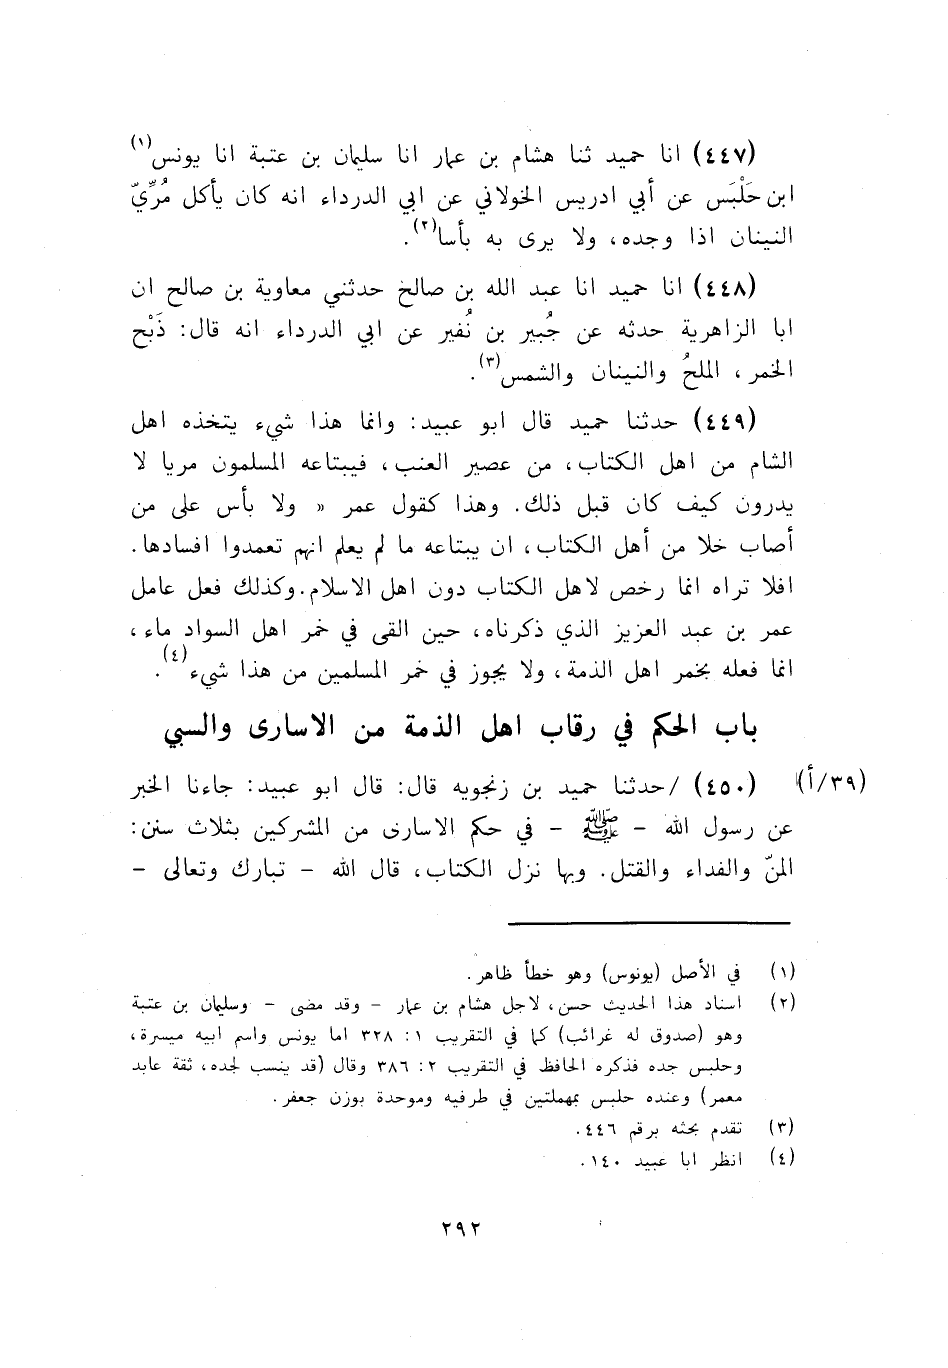 (٤٤٧) انا حميد ثنا هشام بن عمار انا سليمان بن عتبة انا يونس(١)
ابن حَلْبَس عن أبي ادريس الخولاني عن ابي الدرداء انه كان يأكل مُرِّيّ
النينان اذا وجده، ولا يرى به بأسا(٢).
(٤٤٨) انا حميد انا عبد الله بن صالح حدثني معاوية بن صالح ان
ابا الزاهرية حدثه عن جُبير بن نُفير عن ابي الدرداء انه قال: ذَبْح
الخمر، الملحُ والنينان والشمس(٣).
(٤٤٩) حدثنا حميد قال ابو عبيد: وانما هذا شيء يتخذه اهل
الشام من اهل الكتاب، من عصير العنب، فيبتاعه المسلمون مريا لا
يدرون كيف كان قبل ذلك. وهذا كقول عمر « ولا بأس على من
أصاب خلا من أهل الكتاب، ان يبتاعه ما لم يعلم انهم تعمدوا افسادها.
افلا تراه انما رخص لاهل الكتاب دون اهل الاسلام. وكذلك فعل عامل
عمر بن عبد العزيز الذي ذكرناه، حين القى في خمر اهل السواد ماء،
انما فعله بخمر اهل الذمة، ولا يجوز في خمر المسلمين من هذا شيء(٤).
باب الحكم في رقاب اهل الذمة من الاسارى والسبي
(٣٩/أ) (٤٥٠) /حدثنا حميد بن زنجويه قال: قال ابو عبيد: جاءنا الخبر
عن رسول الله - ﷺ - في حكم الاسارى من المشركين بثلاث سنن:
المنّ والفداء والقتل. وبها نزل الكتاب، قال الله - تبارك وتعالى -
(١) في الأصل (يونوس) وهو خطأ ظاهر.
(٢) اسناد هذا الحديث حسن، لاجل هشام بن عمار - وقد مضى - وسليمان بن عتبة
وهو (صدوق له غرائب) كما في التقريب ١: ٣٢٨ اما يونس واسم ابيه ميسرة،
وحلبس جده فذكره الحافظ في التقريب ٢: ٣٨٦ وقال (قد ينسب لجده، ثقة عابد
معمر) وعنده حلبس بمهملتين في طرفيه وموحدة بوزن جعفر.
(٣) تقدم بحثه برقم ٤٤٦.
(٤) انظر ابا عبيد ١٤٠.
٢٩٢